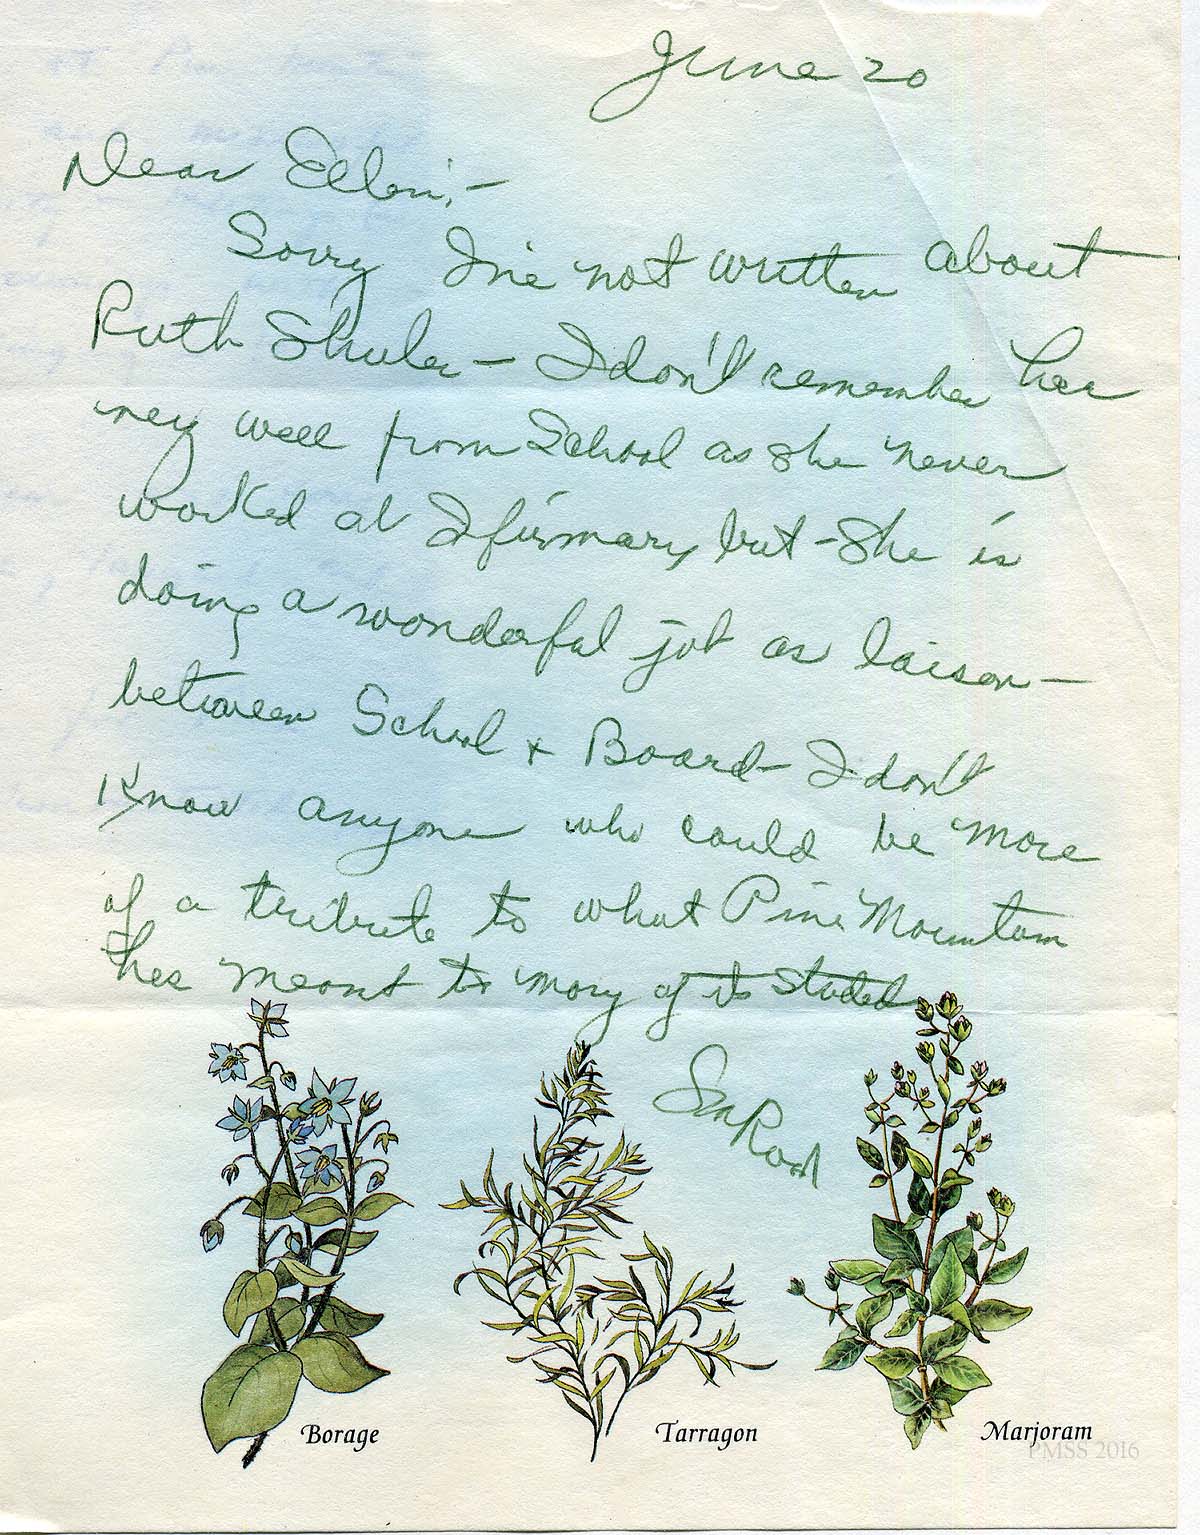 June 20
Dear Ellen:-
Sorry I've not written about
Ruth Shuler - I don't remember her
very well from School as she never
worked at Ifirmary but - She is
doing a wonderful job as laison -
between School & Board - I don't
Know anyone who could be more
of a tribute to what Pine Mountain
has meant to many of its
Borage
Tarragon
Marjoram
PMSS 2016